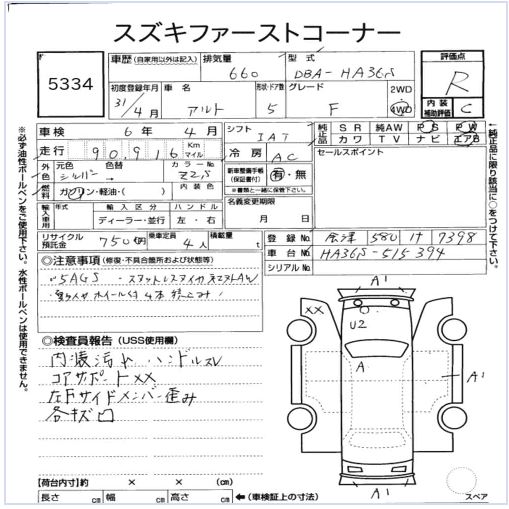 スズキファーストコーナー
5334
車歴 (自家用以外は記入) 排気量 660 型式 DBA-HA36S 評価点 R
初度登録年月 31/4月 車名 アルト 形状・ドア数 5 グレード F 2WD 4WD 内装補助評価 C
車検 6年 4月 シフト IAT 純正品 SR 純AW PS PW
カワ TV ナビ エアB
走行 90,916 Km マイル 冷房 AC セールスポイント
外色 元色 シルバー 色替 カラーNo Z2S 新車整備手帳(保証書付) 有・無
※書類と一緒に保管下さい。
燃料 ガソリン・軽油・( ) 内装色
輸入車用 年式 輸入区分 ディーラー・並行 ハンドル 左・右 名義変更期限 月 日
リサイクル預託金 7500円 乗車定員 4人 積載量 t 登録No 会津 580 け 7398
車台No HA36S-515394
シリアルNo
◎注意事項 (修復・不具合箇所および状態等)
5AGS ・スタットレスタイヤ
ホイール付 4本
◎検査員報告 (USS使用欄)
内装汚れ ハンドルスレ
コアサポートXX
左Fサイドメンバー歪み
各キズ凹
【荷台内寸】 × × (cm)
長さ cm 幅 cm 高さ cm ←(車検証上の寸法)
A1
XX
U2
A
A1
A1
スペア
※必ず油性ボールペンをご使用下さい。水性ボールペンは使用できません。
←純正品に限り該当に○をつけて下さい。